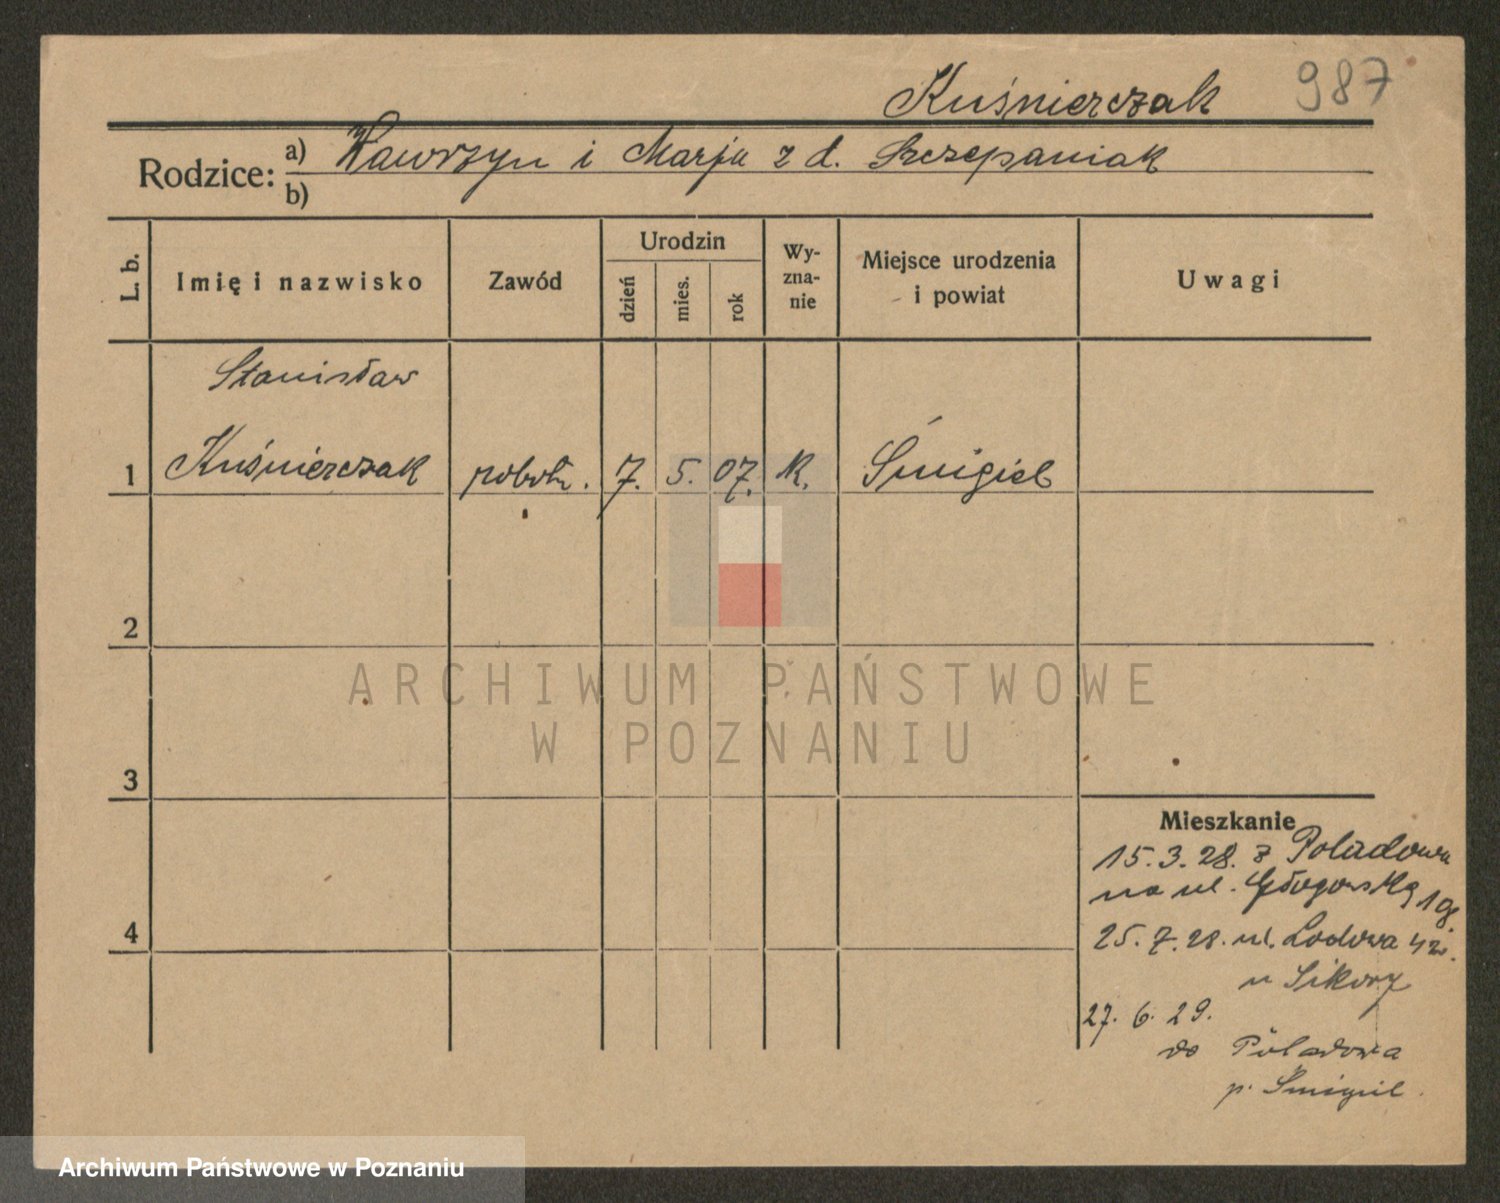 Kuśnierczak 987
Rodzice: a) Wawrzyn i Marja z d. Szczepaniak
b)
L. b.
Imię i nazwisko
Zawód
Urodzin
dzień
mies.
rok
Wy-
zna-
nie
Miejsce urodzenia
i powiat
Uwagi
Stanisław
1 Kuśnierczak robotn. 7. 5. 07. K. Śmigiel
2
3
4
Mieszkanie
15.3.28. z Poladowa
na ul. Głogowską 198.
25.7.28. ul. Lodowa
u Sikory
27.6.29.
do Poladowa
p. Śmigiel.
ARCHIWUM PAŃSTWOWE
W POZNANIU
Archiwum Państwowe w Poznaniu